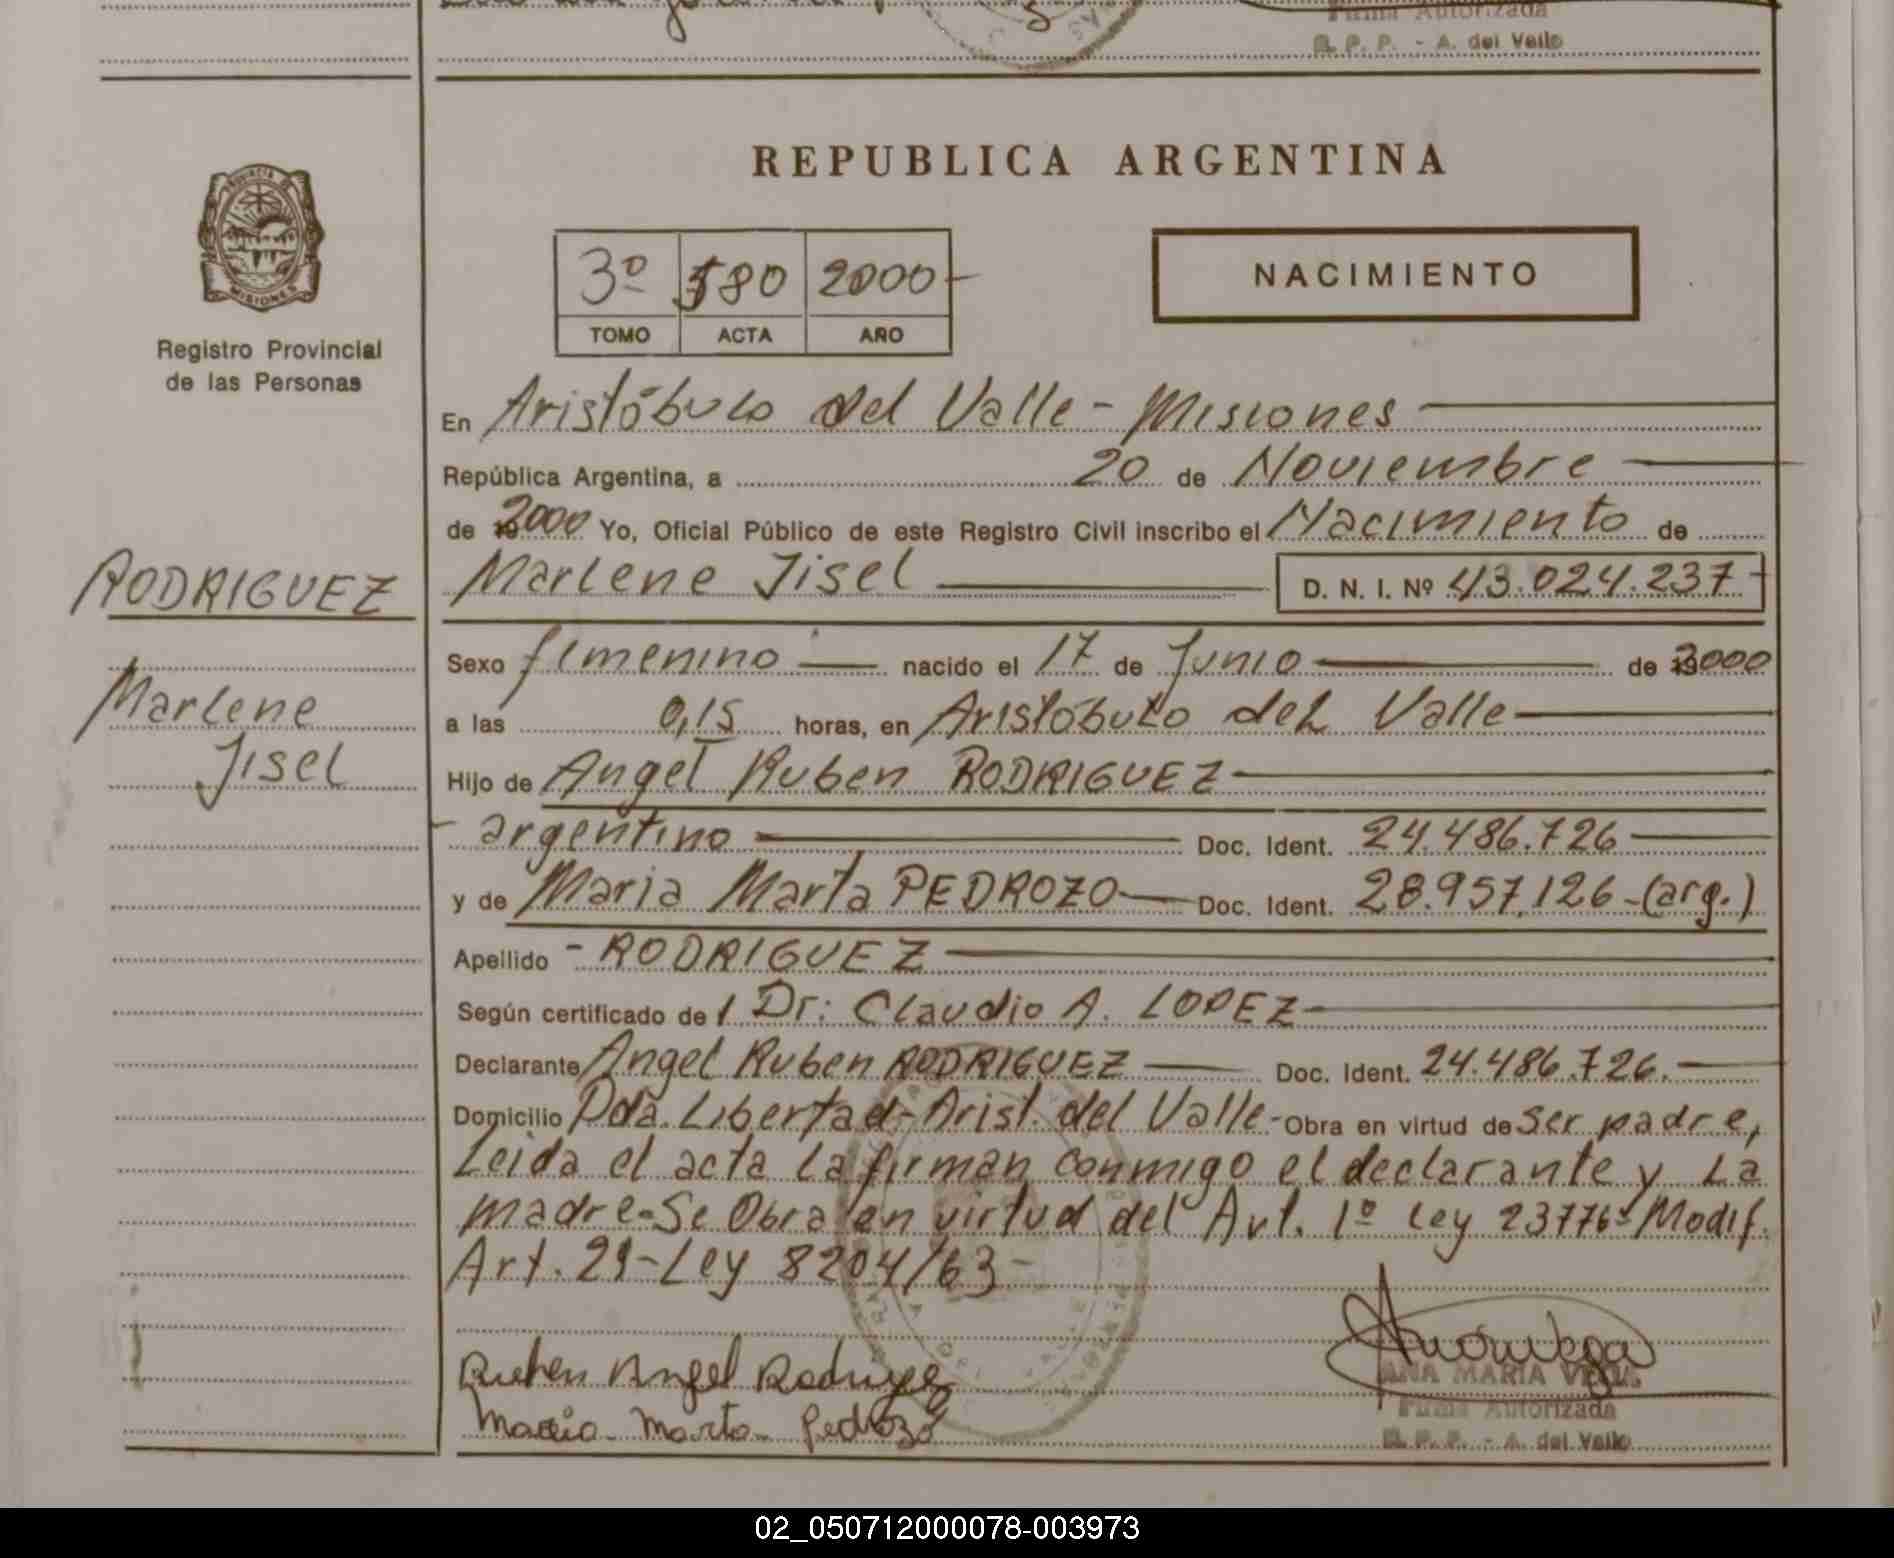 Firma Autorizada
R. P. P. - A. del Valle
REPUBLICA ARGENTINA
PROVINCIA DE
MISIONES
Registro Provincial
de las Personas
3º 580 2000-
TOMO ACTA AÑO
NACIMIENTO
En Aristóbulo del Valle - Misiones
República Argentina, a 20 de Noviembre
de 2000 Yo, Oficial Público de este Registro Civil inscribo el Nacimiento de
RODRIGUEZ
Marlene Jisel D. N. I. Nº 43.024.237-
Marlene
Jisel
Sexo femenino nacido el 17 de Junio de 2000
a las 0,15 horas, en Aristóbulo del Valle
Hijo de Angel Ruben RODRIGUEZ
- argentino Doc. Ident. 24.486.726
y de Maria Marta PEDROZO Doc. Ident. 28.957.126-(arg.)
Apellido - RODRIGUEZ
Según certificado de l Dr: Claudio A. LOPEZ
Declarante Angel Ruben RODRIGUEZ Doc. Ident. 24.486.726.
Domicilio Pda. Libertad-Arist. del Valle- Obra en virtud de ser padre,
Leida el acta la firman conmigo el declarante y la
madre-Se Obra en virtud del Art. 1º Ley 23776-Modif.
Art. 29-Ley 8204/63-
Ruben Angel Rodriguez
Maria Marta Pedrozo
ANA MARIA VEGA
Firma Autorizada
R. P. P. - A. del Valle
02_050712000078-003973